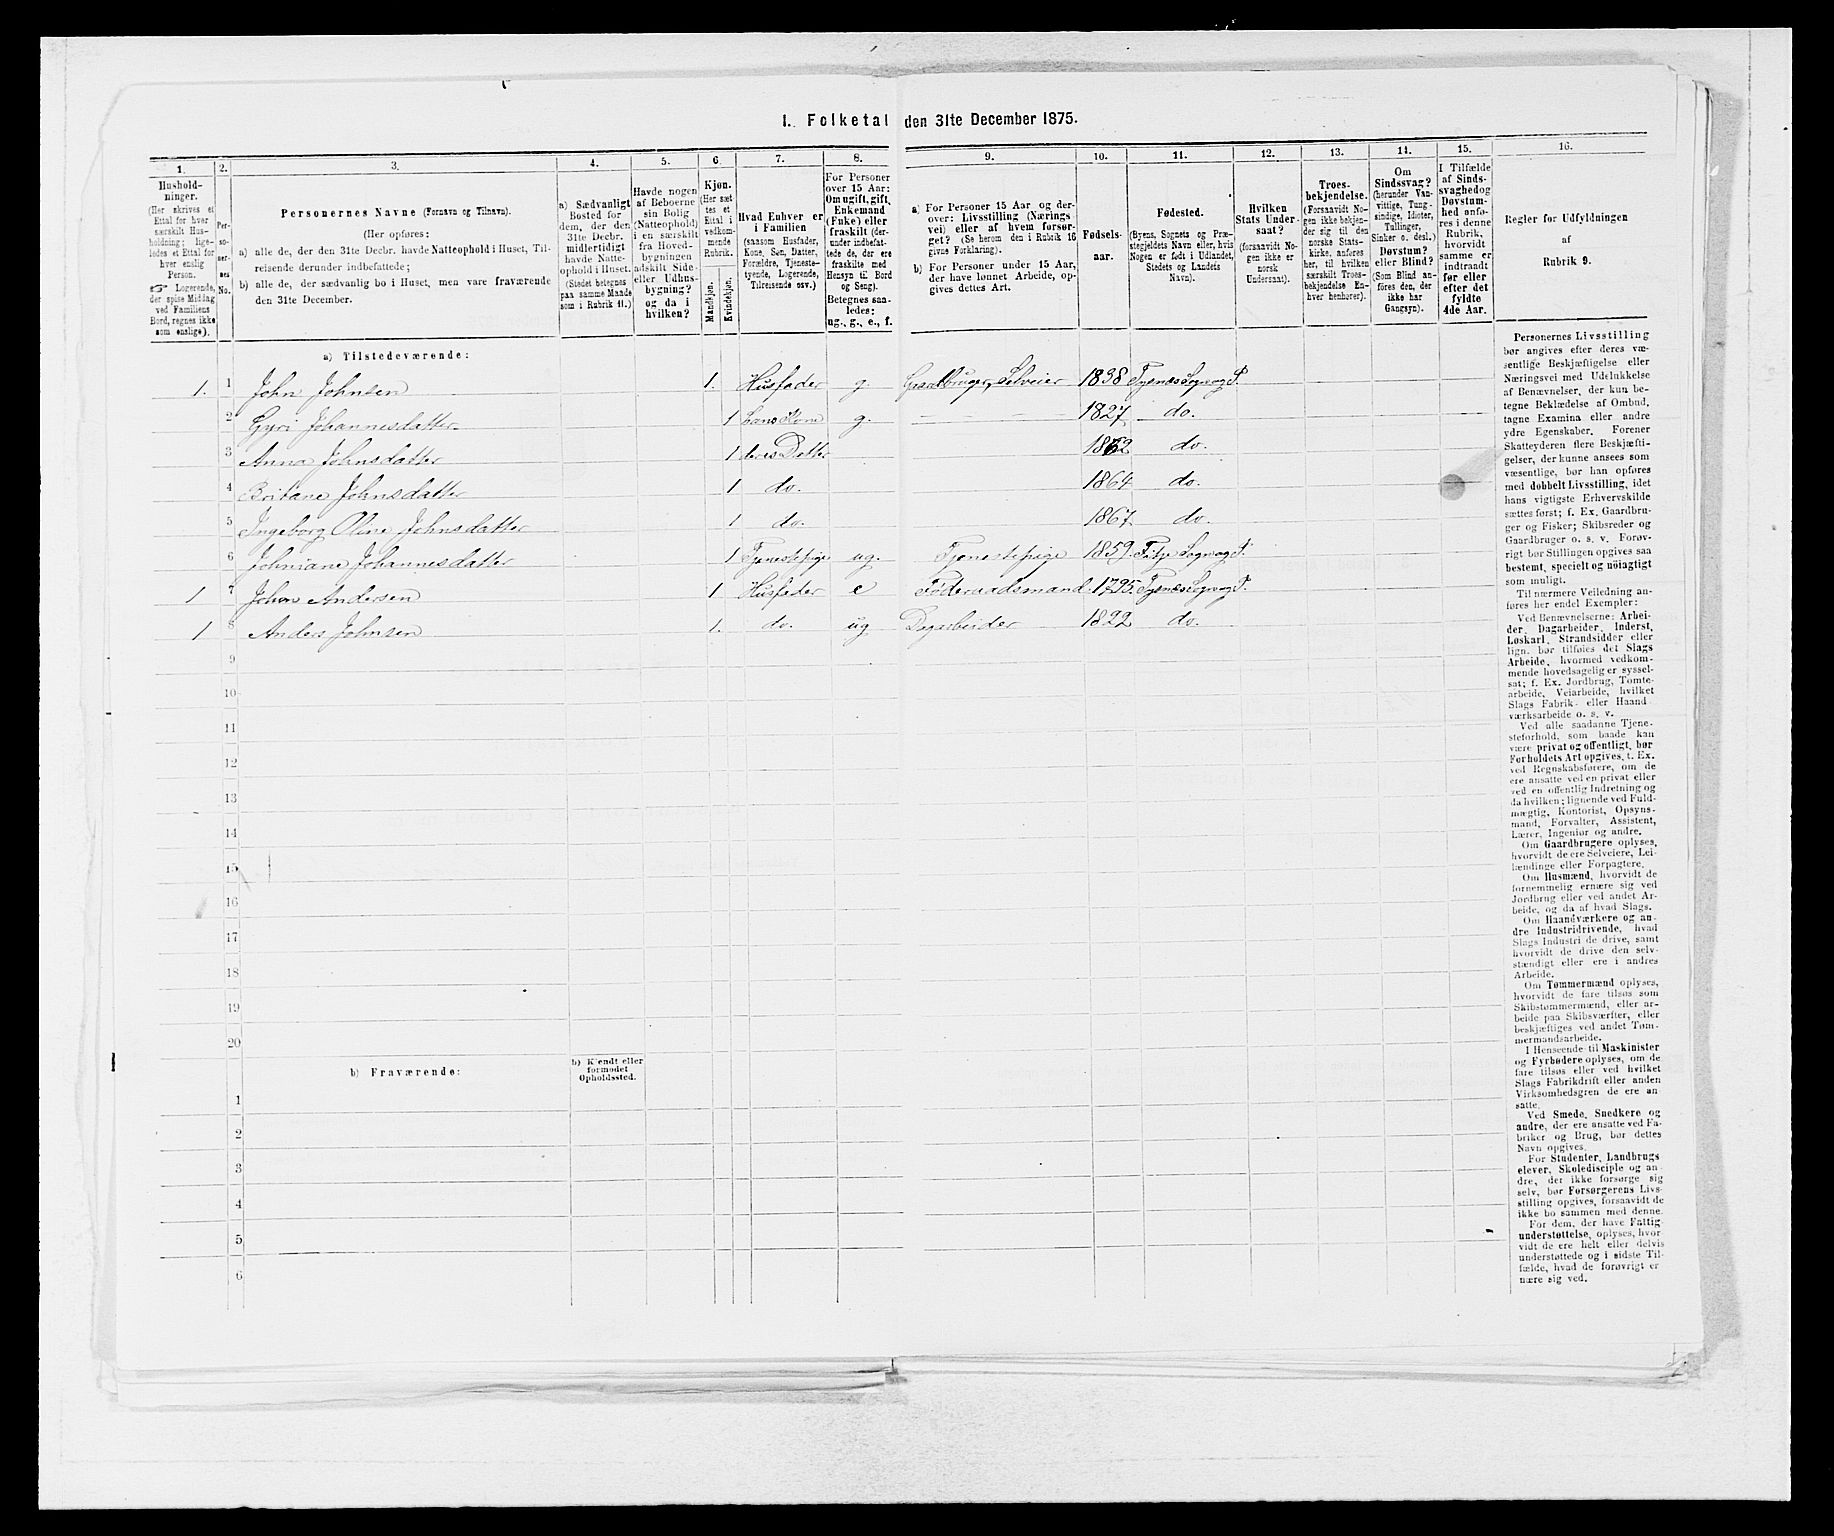 I. Folketal den 31te December 1875.
1. 2. 3. 4. 5. 6. 7. 8. 9. 10. 11. 12. 13. 14. 15. 16.
Husholdninger.
(Her skrives et
Ettal for hver
særskilt Husholdning;
ligeledes et Ettal for
hver enslig
Person.
Logerende,
der spise Middag
ved Familiens
Bord, regnes ikke
som enslige).
Personernes No.
Personernes Navne (Fornavn og Tilnavn).
(Her opføres:
a) alle de, der den 31te Decbr. havde Natteophold i Huset, Tilreisende derunder indbefattede;
b) alle de, der sædvanlig bo i Huset, men vare fraværende
den 31te December.
a) Sædvanligt
Bosted for
dem, der den
31te Decbr.
midlertidigt
havde Natteophold i Huset.
(Stedet betegnes
paa samme Maade
som i Rubrik 11.)
Havde nogen
af Beboerne
sin Bolig
(Natteophold)
i en særskilt
fra Hovedbygningen
adskilt Side-
eller Udhusbygning?
og da i
hvilken?
Kjøn.
(Her sættes et
Ettal i
vedkommende
Rubrik.
Mandkjøn.
Kvindekjøn.
Hvad Enhver er
i Familien
(saasom Husfader,
Kone, Søn, Datter,
Forældre, Tjenestetyende, Logerende,
Tilreisende osv.)
For Personer
over 15 Aar:
Om ugift, gift,
Enkemand
(Enke) eller
fraskilt (derunder indbefattede de, der ere
fraskilte med
Hensyn til Bord
og Seng).
Betegnes saaledes:
ug., g., e., f.
a) For Personer 15 Aar og derover: Livsstilling (Næringsvei) eller af hvem forsørget? (Se herom den i Rubrik 16
givne Forklaring).
b) For Personer under 15 Aar,
der have lønnet Arbeide, opgives dettes Art.
Fødselsaar.
Fødested.
(Byens, Sognets og Præstegjeldets Navn eller, hvis
Nogen er født i Udlandet,
Stedets og Landets
Navn).
Hvilken
Stats Undersaat?
(forsaavidt Nogen ikke er
norsk
Undersaat).
Troesbekjendelse.
(Forsaavidt Nogen ikke bekjender sig til den
norske Statskirke, anføres
her, til hvilken
særskilt Troesbekjendelse Enhver henhører).
Om
Sindssvag?
(herunder Vanvittige, Tungsindige, Idioter,
Tullinger,
Sinker o. desl.)
Døvstum?
eller Blind?
(Som Blind anføres den, der
ikke har
Gangsyn).
I Tilfælde
af Sindssvaghed og
Døvstumhed anføres i denne
Rubrik,
hvorvidt
samme er
indtraadt
før eller
efter det
fyldte
4de Aar.
Regler for Udfyldningen
af
Rubrik 9.
a) Tilstedeværende:
1. 1 John Johnsen 1. Husfader g. Gaardbruger, Selveier 1838 Tysnes Sogn og P.
2 Gyri Johannesdatter 1 hans Kone g. 1827 do.
3 Anna Johnsdatter 1 deres Datter 1862 do.
4 Britane Johnsdatter 1 do. 1864 do.
5 Ingeborg Oline Johnsdatter 1 do. 1867 do.
6 Johniane Johannesdatter 1 Tjenestepige ug. Tjenestepige 1859. Fitje Sogn og P.
1 7 John Andersen 1 Husfader e Føderaadsmand. 1795. Tysnes Sogn og P.
1 8 Anders Johnsen 1. do. ug Dagarbeider 1822 do.
9
10
11
12
13
14
15
16
17
18
19
20
b) Fraværende:
b) Kjendt eller
formodet
Opholdssted.
1
2
3
4
5
6
Personernes Livsstilling
bør angives efter deres væsentlige Beskjæftigelse eller
Næringsvei med Udelukkelse
af Benævnelser, der kun betegne Beklædelse af Ombud,
tagne Examina eller andre
ydre Egenskaber. Forener
Skatteyderen flere Beskjæftigelser, der kunne ansees som
væsentlige, bør han opføres
med dobbelt Livsstilling, idet
hans vigtigste Erhvervskilde
sættes først; f. Ex. Gaardbruger og Fisker; Skibsreder og
Gaardbruger o. s. v. Forøvrigt bør Stillingen opgives saa
bestemt, specielt og nøiagtigt
som muligt.
Til nærmere Veiledning anføres her endel Exempler:
Ved Benævnelserne: Arbeider, Dagarbeider, Inderst,
Løskarl, Strandsidder eller
lign. bør tilføies det Slags
Arbeide, hvormed vedkommende hovedsagelig er sysselsat; f. Ex. Jordbrug, Tomtearbeide, Veiarbeide, hvilket
Slags Fabrik- eller Haandværksarbeide o. s. v.
Ved alle saadanne Tjenesteforhold, som baade kan
være privat og offentligt, bør
Forholdets Art opgives, t. Ex.
ved Regnskabsførere, om de
ere ansatte ved en privat eller
ved en offentlig Indretning og
da hvilken; lignende ved Fuldmægtig, Kontorist, Opsynsmand, Forvalter, Assistent,
Lærer, Ingeniør og andre.
Om Gaardbrugere oplyses,
hvorvidt de ere Selveiere, Leilændinge eller Forpagtere.
Om Husmænd, hvorvidt de
fornemmelig ernære sig ved
Jordbrug eller ved andet Arbeide, og da af hvad Slags.
Om Haandværkere og andre Industridrivende, hvad
Slags Industri de drive, samt
hvorvidt de drive den selvstændigt eller ere i andres
Arbeide.
Om Tømmermænd oplyses,
hvorvidt de fare tilsøs som
Skibstømmermænd, eller arbeide paa Skibsværfter, eller
beskjæftiges ved andet Tømmermandsarbeide.
I Henseende til Maskinister
og Fyrbødere oplyses, om de
fare tilsøs eller ved hvilket
Slags Fabrikdrift eller anden
Virksomhedsgren de ere ansatte.
Ved Smede, Snedkere og
andre, der ere ansatte ved Fabriker og Brug, bør dettes
Navn opgives.
For Studenter, Landbrugselever, Skoledisciple og andre, der ikke forsørge sig
selv, bør Forsørgerens Livsstilling opgives, forsaavidt de
ikke bo sammen med denne.
For dem, der have Fattigunderstøttelse, oplyses, hvorvidt de ere helt eller delvis
understøttede og i sidste Tilfælde, hvad de forøvrigt ernære sig ved.